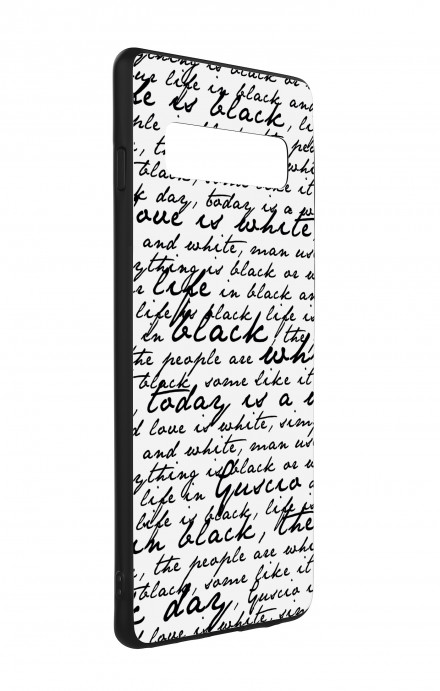 ything is black or w
ur life in black and
fe is black, li
ple
, t
blac
some like it
k day, today is a w
ove is white
and white, man us
ything is black or w
r life in black an
life is black life is
in black, the
the people are wh
black, some like it
today is a w
d love is white, sim
and white, man us
ything is black or w
life in Guscio a
life is black, life is
in black, the
, the people are whi
black, some like it
k day, Guscio i
love is white, sim